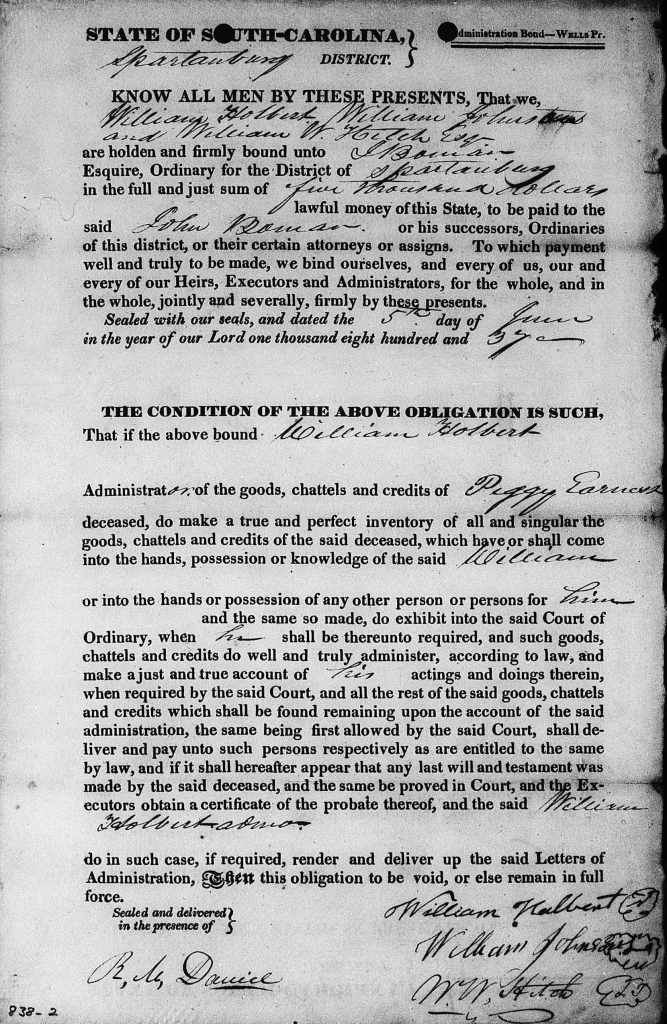 STATE OF SOUTH-CAROLINA,
Administration Bond—WELLS Pr.
Spartanburg DISTRICT.
KNOW ALL MEN BY THESE PRESENTS, That we,
William Holbert, William Johnston
and William W. Hitch Esq
are holden and firmly bound unto J Boman
Esquire, Ordinary for the District of Spartanburg
in the full and just sum of five thousand dollars
lawful money of this State, to be paid to the
said John Boman. or his successors, Ordinaries
of this district, or their certain attorneys or assigns. To which payment
well and truly to be made, we bind ourselves, and every of us, our and
every of our Heirs, Executors and Administrators, for the whole, and in
the whole, jointly and severally, firmly by these presents.
Sealed with our seals, and dated the 5th. day of June
in the year of our Lord one thousand eight hundred and 37
THE CONDITION OF THE ABOVE OBLIGATION IS SUCH,
That if the above bound William Holbert
Administrator of the goods, chattels and credits of Peggy Earnest
deceased, do make a true and perfect inventory of all and singular the
goods, chattels and credits of the said deceased, which have or shall come
into the hands, possession or knowledge of the said William
or into the hands or possession of any other person or persons for him
and the same so made, do exhibit into the said Court of
Ordinary, when he shall be thereunto required, and such goods,
chattels and credits do well and truly administer, according to law, and
make a just and true account of his actings and doings therein,
when required by the said Court, and all the rest of the said goods, chattels
and credits which shall be found remaining upon the account of the said
administration, the same being first allowed by the said Court, shall de-
liver and pay unto such persons respectively as are entitled to the same
by law, and if it shall hereafter appear that any last will and testament was
made by the said deceased, and the same be proved in Court, and the Ex-
ecutors obtain a certificate of the probate thereof, and the said William
Holbert admor
do in such case, if required, render and deliver up the said Letters of
Administration, Then this obligation to be void, or else remain in full
force.
Sealed and delivered
in the presence of
William Halbert
William Johnston
R, M, Daniel
W. W. Hitch
838-2